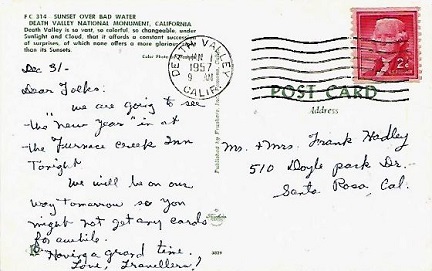 FC 314 - SUNSET OVER BAD WATER
DEATH VALLEY NATIONAL MONUMENT, CALIFORNIA
Death Valley is so vast, so colorful, so changeable, under
Sunlight and Cloud, that it affords a constant succession
of surprises, of which none offers a more glorious
than its Sunsets.
Color Photo
Dec 31-
Dear Folks:
We are going to see
the "New Year" in at
the Furnace Creek Inn
Tonight
We will be on our
way tomorrow so you
might not get any cards
for awhile.
Having a grand time.
Love, Travellers!
Published by
DEATH VALLEY
JAN 1
1957
9 AM
CALIF.
2¢
POST CARD
Address
Mr. & Mrs. Frank Hadley
510 Doyle park Dr.
Santa Rosa, Cal.